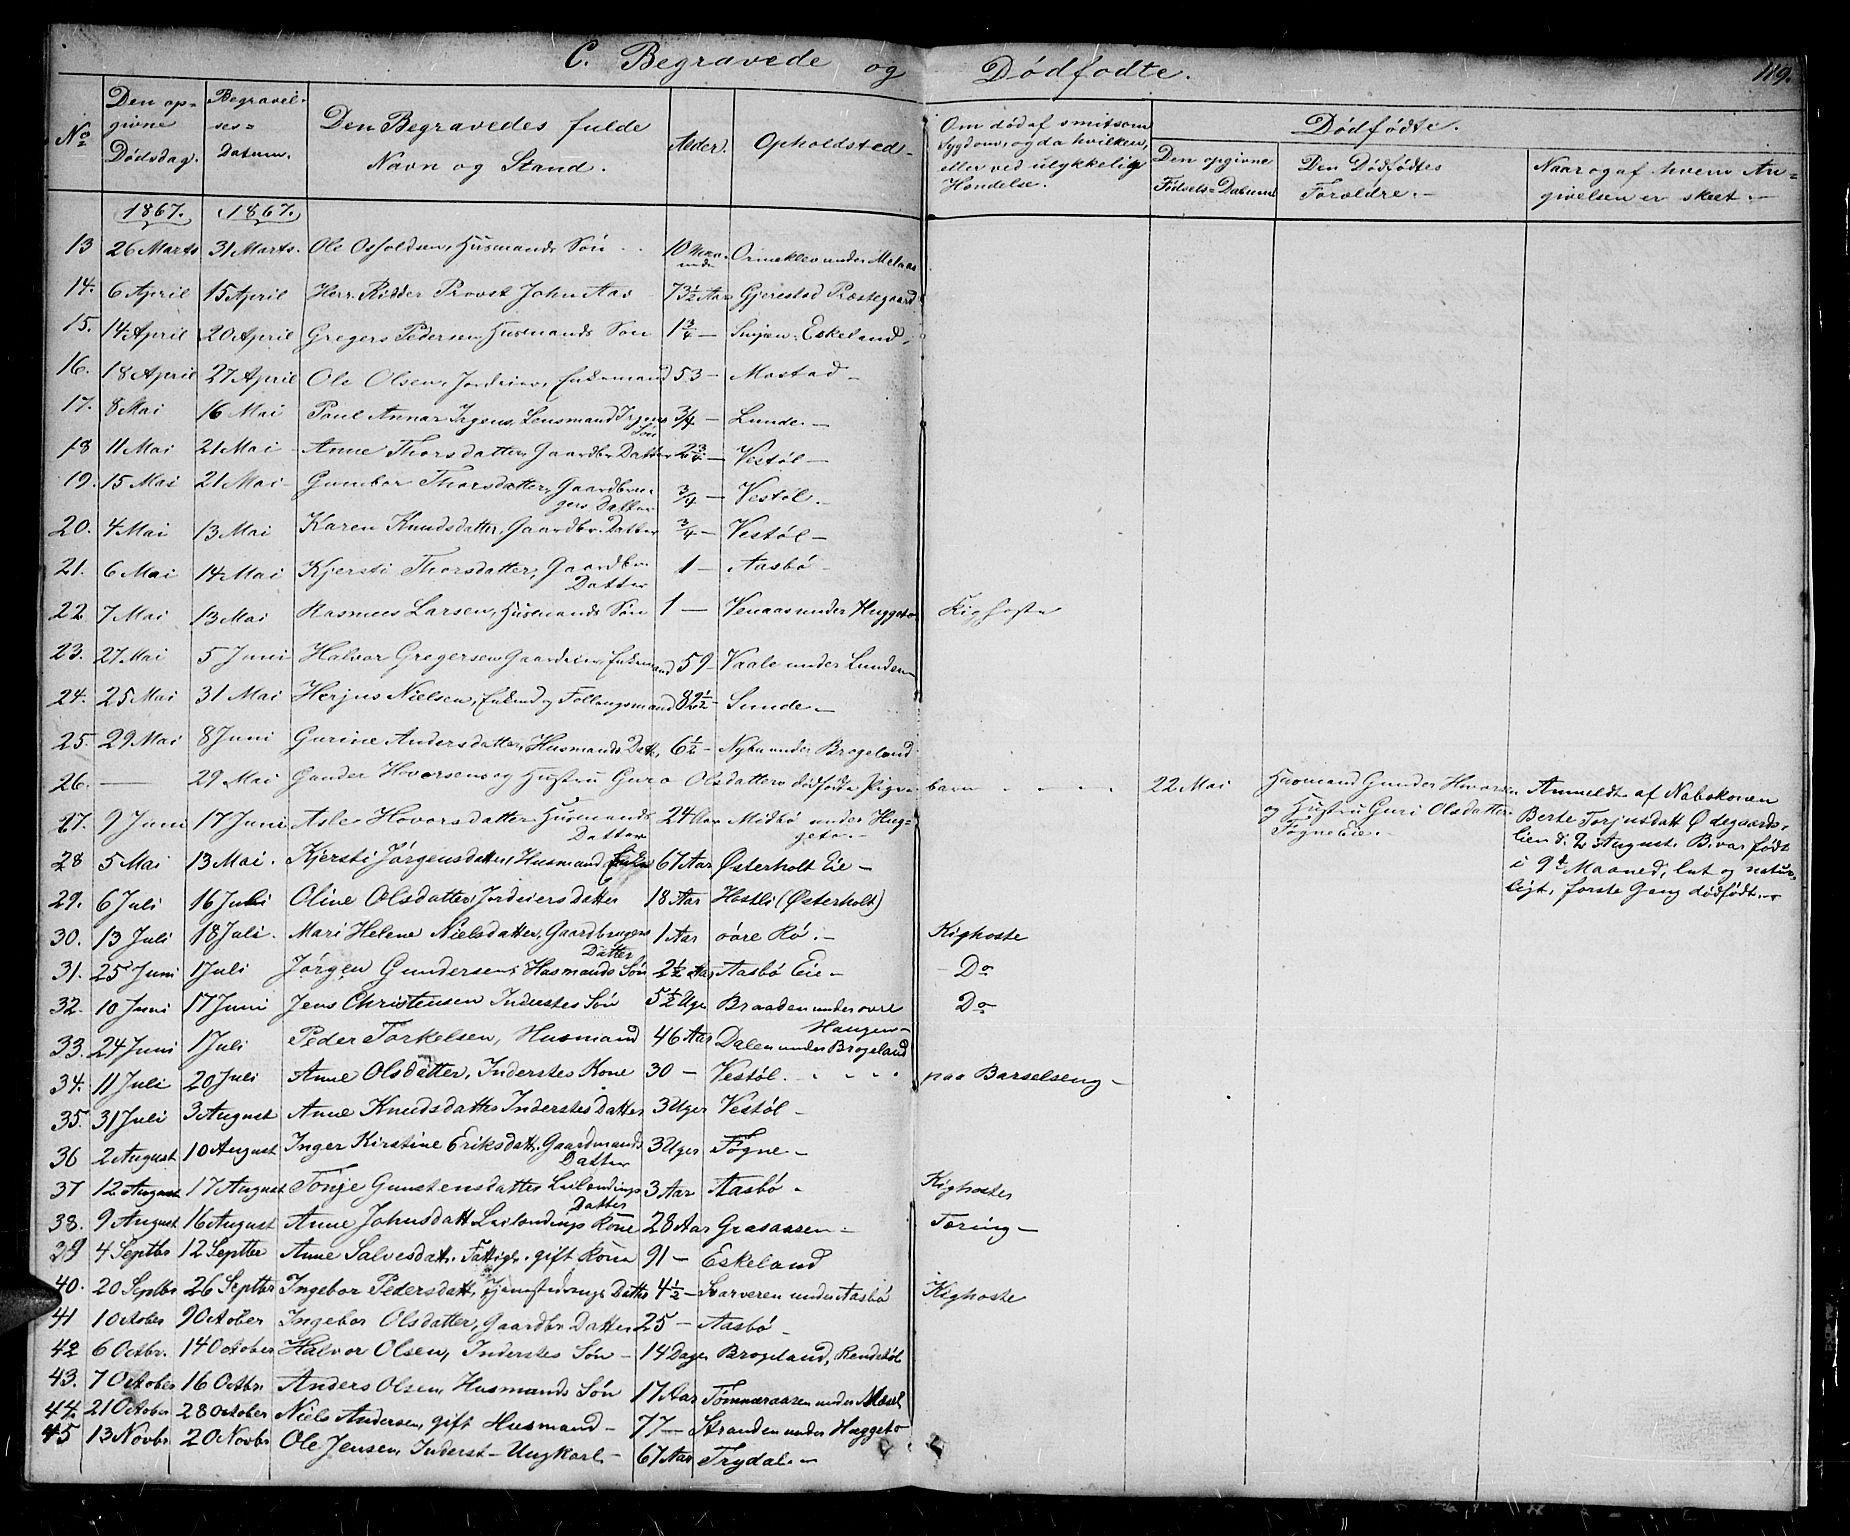 C. Begravede og Dødfødte. 119.
No
Den opgivne Dødsdag.
Begravelses=Datum.
Den Begravedes fulde Navn og Stand.
Alder.
Opholdsted
Om død af smitsom Sygdom, og da hvilken, eller ved ulykkelig Hændelse.
Dødfødte.
Den opgivne Fødsels=Datum
Den Dødfødtes Forældre.
Naar og af hvem Angivelsen er skeet.
1867. 1867.
13 26 Marts 31 Marts. Ole Husmands Søn 10 Ormeklev under
14. 6 April 15 April Herr Ridder Provst John Aas 73½ Aar Gjerestad Præstegaard
15. 14 April 20 April Gregers Pedersen, Husmands Søn 1¾ — Eskeland
16. 18 April 27 April Ole Olsen, Jordeier, Enkemand 53 — Mostad —
17. 8 Mai 16 Mai Poul Annar Irgens, Lensmand Irgens Søn ¾ — Lunde. —
18 11 Mai 21 Mai Anne Thorsdatter, Gaardbr Datter 2¾ — Vestøl —
19. 15 Mai 21 Mai Gunbor Thorsdatter, Gaardbrugers Datter ¾ — Vestøl. —
20. 4 Mai 13 Mai Karen Knudsdatter, Gaardbr. Datter ¾ — Vestøl —
21. 6 Mai 14 Mai Kjersti Thorsdatter, Gaardbr Datter 1 — Aasbø —
22. 7 Mai 13 Mai Rasmus Larsen, Husmands Søn 1 — Venaas under Huggeto Kighoste
23. 27 Mai 5 Juni Halvor Gregersen Gaardeier, Enkemand 59 — Vaale under Lunden
24. 25 Mai 31 Mai Herjus Nielsen, Enkemd og Follaugsmand 89½ — Sunde. —
25. 29 Mai 8 Juni Gurine Andersdatter, Husmands Datt. 6½ — under Brogeland
26. — 29 Mai Gunder Hovorsens og Hustru Guro Olsdatters dødfødte Pigebarn 22 Mai Husmand Gunder Hovorsen og Hustru Guri Olsdatter Føgne Eie. — Anmeldt af Nabokonen Berte Torjusdatt Ødegaardslien d. 2 August. B. var født i 9d Maaned, let og naturligt, første Gang dødfødt. —
27. 9 Juni 17 Juni Asle Hovorsdatter Husmands Datter 24 Aar Midbø under Huggeto. —
28 5 Mai 13 Mai. Kjersti Jørgensdatter, Husmand Enke 67 Aar Østerholt Eie —
29. 6 Juli 16 Juli Oline Olsdatter, Jordeiers Datter 18 Aar Hostli (Østerholt)
30. 13 Juli 18 Juli. Mari Helene Nielsdatter, Gaardbrugers Datter 1 Aar øvre Rø. — Kighoste
31. 25 Juni 1 Juli Jørgen Gundersen, Husmands Søn 2½ Aar Aasbø Eie — Do
32. 10 Juni 17 Juni Jens Christensen Inderstes Søn 5½ Uger Braaden under øvre Haugen — Do
33. 24 Juni 1 Juli Peder Torkelsen, Husmand 46 Aar Dalen under Brogeland
34. 11 Juli 20 Juli Anne Olsdatter, Inderstes Kone 30 — Vestøl. paa Barselseng —
35. 31 Juli 3 August Anne Knudsdatter Inderstes Datter 3 Uger Vestøl —
36 2 August 10 August Inger Kirstine Eriksdatt. Gaardmands Datter 3 Uger Føgne —
37 12 August 17 August Tonje Gunstensdatter Leilendings Datter 3 Aar Aasbø — Kighoste
38. 9 August 16 August Anne Johnsdatt Leilendings Kone 28 Aar Grasaasen — Tæring —
39 4 Septbr 12 Septbr Anne Salvesdatt. Fattigl. gift Kone 91 — Eskeland
40. 20 Septbr 26 Septbr Ingebor Pedersdatt, Datter 4½ — Sarveren under Aasbø Kighoste
41 1 October 9 October Ingebor Olsdatter, Gaardbr Datter 25 — Aasbø —
42 6 Octbr. 14 October Halvor Olsen, Inderstes Søn — 14 Dage Brogeland, Rendstøl
43. 7 October 16 Octbr. Anders Olsen, Husmands Søn 17 Aar Tømmeraasen under Mæsel
44. 21 October 28 October Niels Andersen, gift Husmand — 77 — Stranden under Huggeto
45 13 Novbr 20 Novbr Ole Jensen, Inderst — Ungkarl — 67 Aar Trydal. —